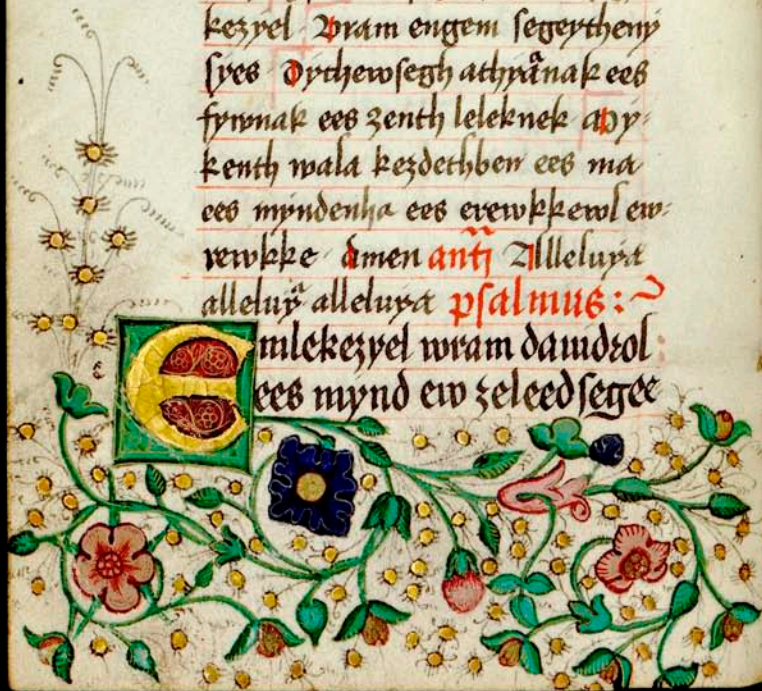 kezyel Wram engem segeytheny
syes Dychewsegh athyanak ees
fywnak ees zenth leleknek My-
kenth wala kezdethben ees ma
ees myndenha ees erewkkewl ew-
rewkke amen antj Alleluya
alleluya alleluya psalmus :
Emlekezyel wram dauidrol :
ees mynd ew zeleedsegee